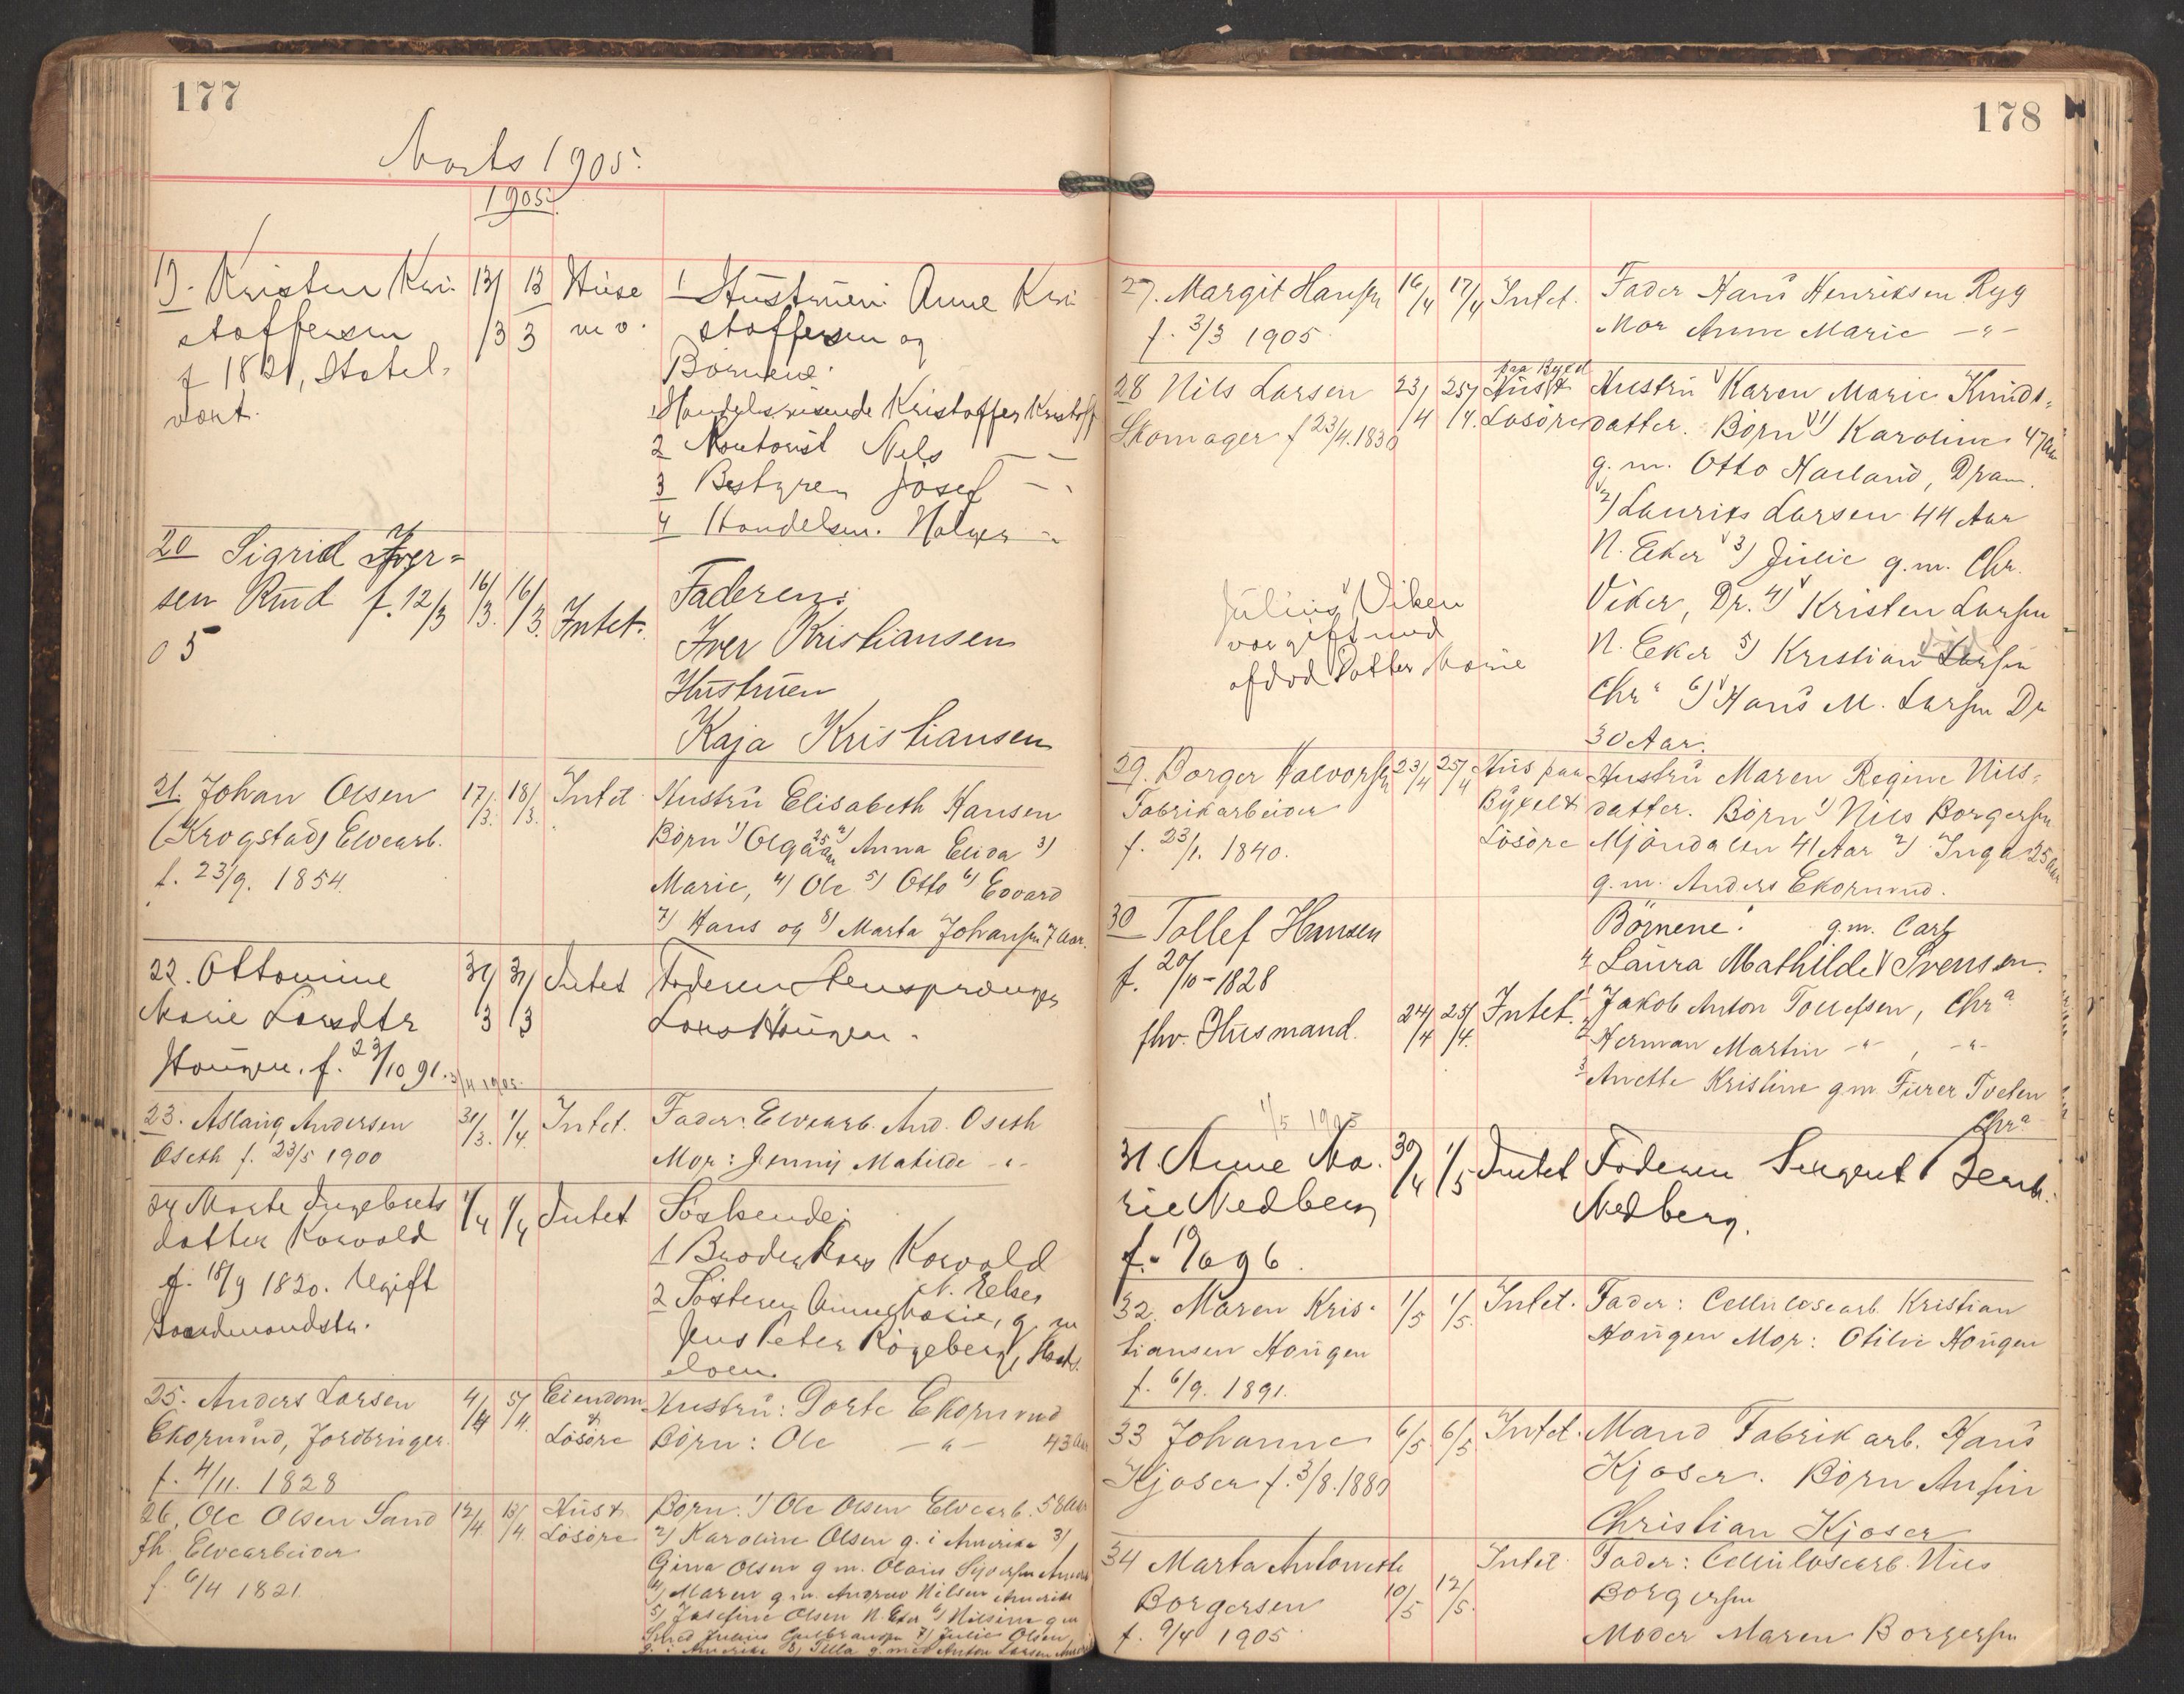 177
Marts 1905.
1905.
19. Kristen Kri- 13/3 13/3 Huse 1 Hustruen Anne Kri
stoffersen m v. stoffersen og
f 1821, Hotel- Börnene:
vært. 1 Handelsreisende Kristoffer Kristoff
2 Kontorist Nels — —
3 Bestyrer Josef — -
4 Handelsm. Holger -
20 Sigrid Iver=
sen Rud f. 12/3 16/3. 16/3. Intet. Faderen:
05 Iver Kristiansen
Hustruen
Kaja Kristiansen
21. Johan Olsen 17/3. 18/3. Intet Hustru Elisabeth Hansen
(Krogstad) Elvearb. Börn 1) Olga 25 aar 2) Anna Elida 3)
f. 23/9. 1854. Marie, 4) Ole 5) Otto 6) Edvard
7) Hans og 8) Marta Johansen 7 Aar.
22. Ottomine 31/3 31/3 Intet Faderen Stensprænger
Marie Larsdtr Lars Hougen.
Hougen. f. 23/10 91. 3/4 1905.
23. Aslaug Andersen 31/3. 1/4. Intet. Fader: Elvearb. And. Oseth
Oseth f. 23/5 1900 Mor: Jenny Matilde -"-
24 Marte Ingebrets 1/4 1/4 Intet Söskende:
datter Korvold 1 Broder Lars Korvold
f. 18/9 1820. Ugift N. Eker
Gaardmandsdtr. 2 Sösteren Anne Marie, g. m
Jens Peter Kogeberg,
25. Anders Larsen 4/4 5/4. Eiendom Hustru: Dorte Ekornrud
Ekornrud, Jordbruger. & Lösöre Börn: Ole —"— 43 Aar
f. 4/11. 1828
26. Ole Olsen Sand 12/4 13/4. Hus & Börn. 1) Ole Olsen Elvearb. 58 Aar
fh. Elvearbeider Lösöre 2) Karoline Olsen g. i Amerika 3)
f. 6/4 1821. Gina Olsen g m. Olaus Syversen Amerika
4) Maren g. m. Andrew Nilsen Amerika
5) Josefine Olsen N. Eker 6) Nilsine g m
Smed Julius Gulbransen 7) Julie Olsen
g. i Amerika 8) Tella g. med Anton Larsen Amerika
178
27. Margit Hansen 16/4 17/4 Intet. Fader Hans Henriksen Ryg
f. 3/3 1905. Mor Anne Marie -"-
28 Nils Larsen 23/4 25/4. paa Bygsel Hus & Hustru Karen Marie Knuds=
Skomager f 23/4. 1830 Lösöre datter. Börn 1) Karoline 47 Aar
g. m. Otto Narland, Dram.
2) Laurits Larsen 44 Aar
N. Eker 3) Julie g. m. Chr.
Julius Viken Viker, Dr. 4) Kristen Larsen
var gift med N. Eker 5) Kristian Larsen
afdöd Datter Marie Chra 6) Hans M. Larsen Dr
30 Aar.
29. Borger Halvorsen 23/4 25/4 Hus paa Hustru Maren Regine Nils=
Fabrikarbeider Bygsel & datter. Börn 1) Nils Borgersen
f. 23/1. 1840. Lösöre Mjöndalen 41 Aar 2) Inga 25 Aar
g. m. Anders Ekornrud.
30 Tollef Hansen Börnene: g. m. Carl
f. 20/10-1828 4 Laura Mathilde Svensen.
fhv. Husmand. 24/4 25/4. Intet. 1 Jakob Anton Tollefsen, Chra
2 Herman Martin -"-, -"-
3 Anette Kristine g m Furer Tveten
Chra
1/5 1905
31. Anne Ma- 30/4 1/5 Intet Faderen Sergent Bernh.
rie Nedberg Nedberg.
f. 96.
32. Maren Kris- 1/5 1/5. Intet. Fader: Cellulosearb. Kristian
tiansen Hougen Hougen Mor: Otilie Hougen
f. 6/9. 1891.
33 Johanne 6/5. 6/5 Intet. Mand Fabrikarb. Hans
Kjoser f. 3/8. 1880 Kjoser. Börn Ansin
Christian Kjoser
34 Marta Antonette Intet. Fader: Cellulosearb. Nils
Borgersen 10/5 12/5. Borgersen
f. 9/4 1905. Moder Maren Borgersen